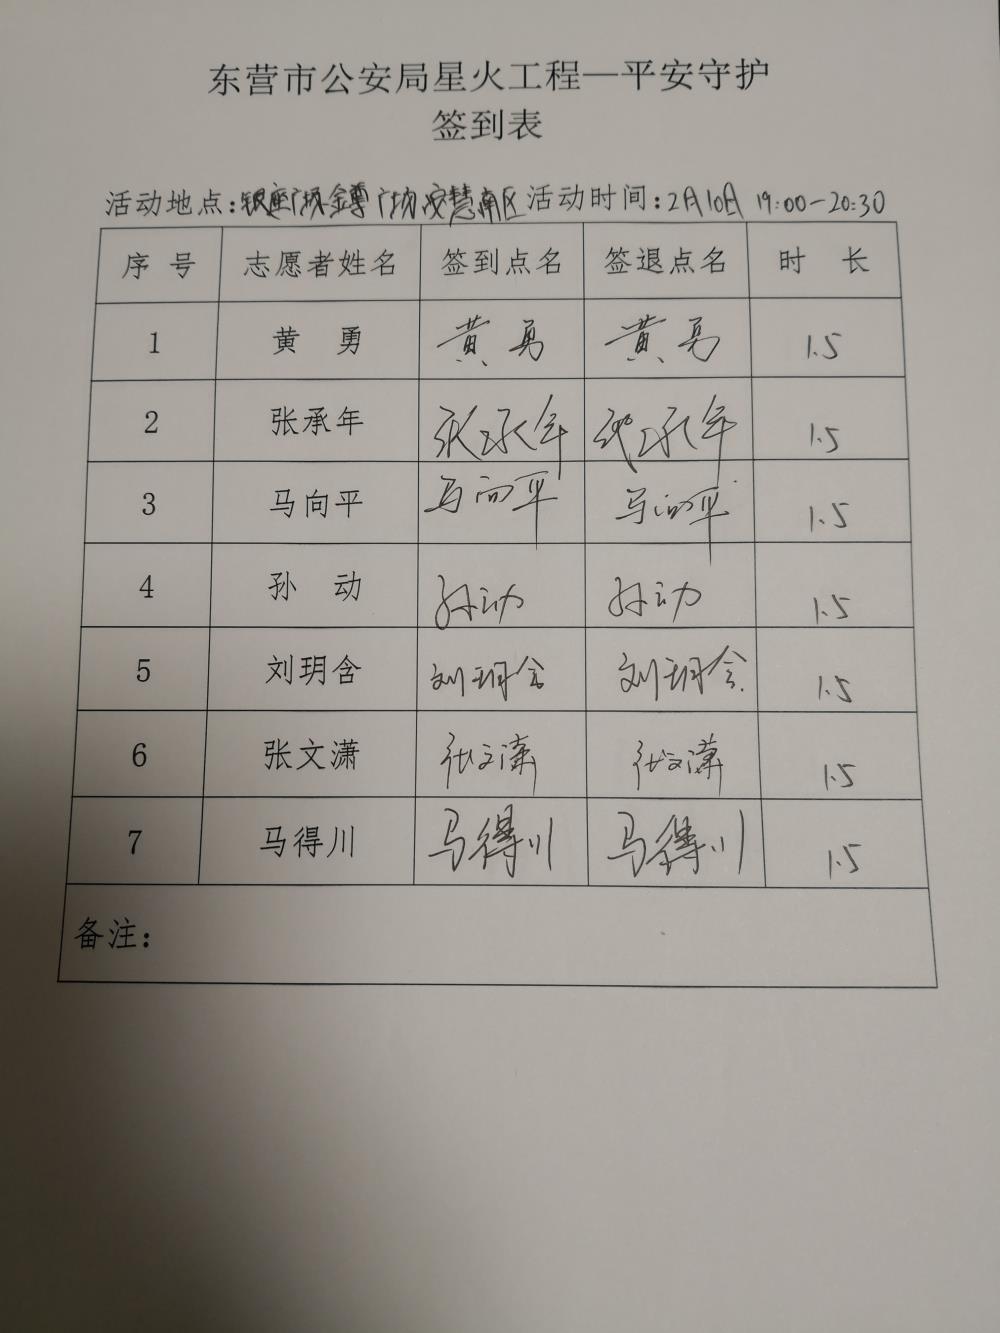 东营市公安局星火工程—平安守护
签到表
活动地点:银座广场金辉广场安慧南区 活动时间:2月10日 19:00-20:30
序 号 志愿者姓名 签到点名 签退点名 时 长
1 黄 勇 黄勇 黄勇 1.5
2 张承年 张承年 张承年 1.5
3 马向平 马向平 马向平 1.5
4 孙 动 孙动 孙动 1.5
5 刘玥含 刘玥含 刘玥含 1.5
6 张文潇 张文潇 张文潇 1.5
7 马得川 马得川 马得川 1.5
备注: